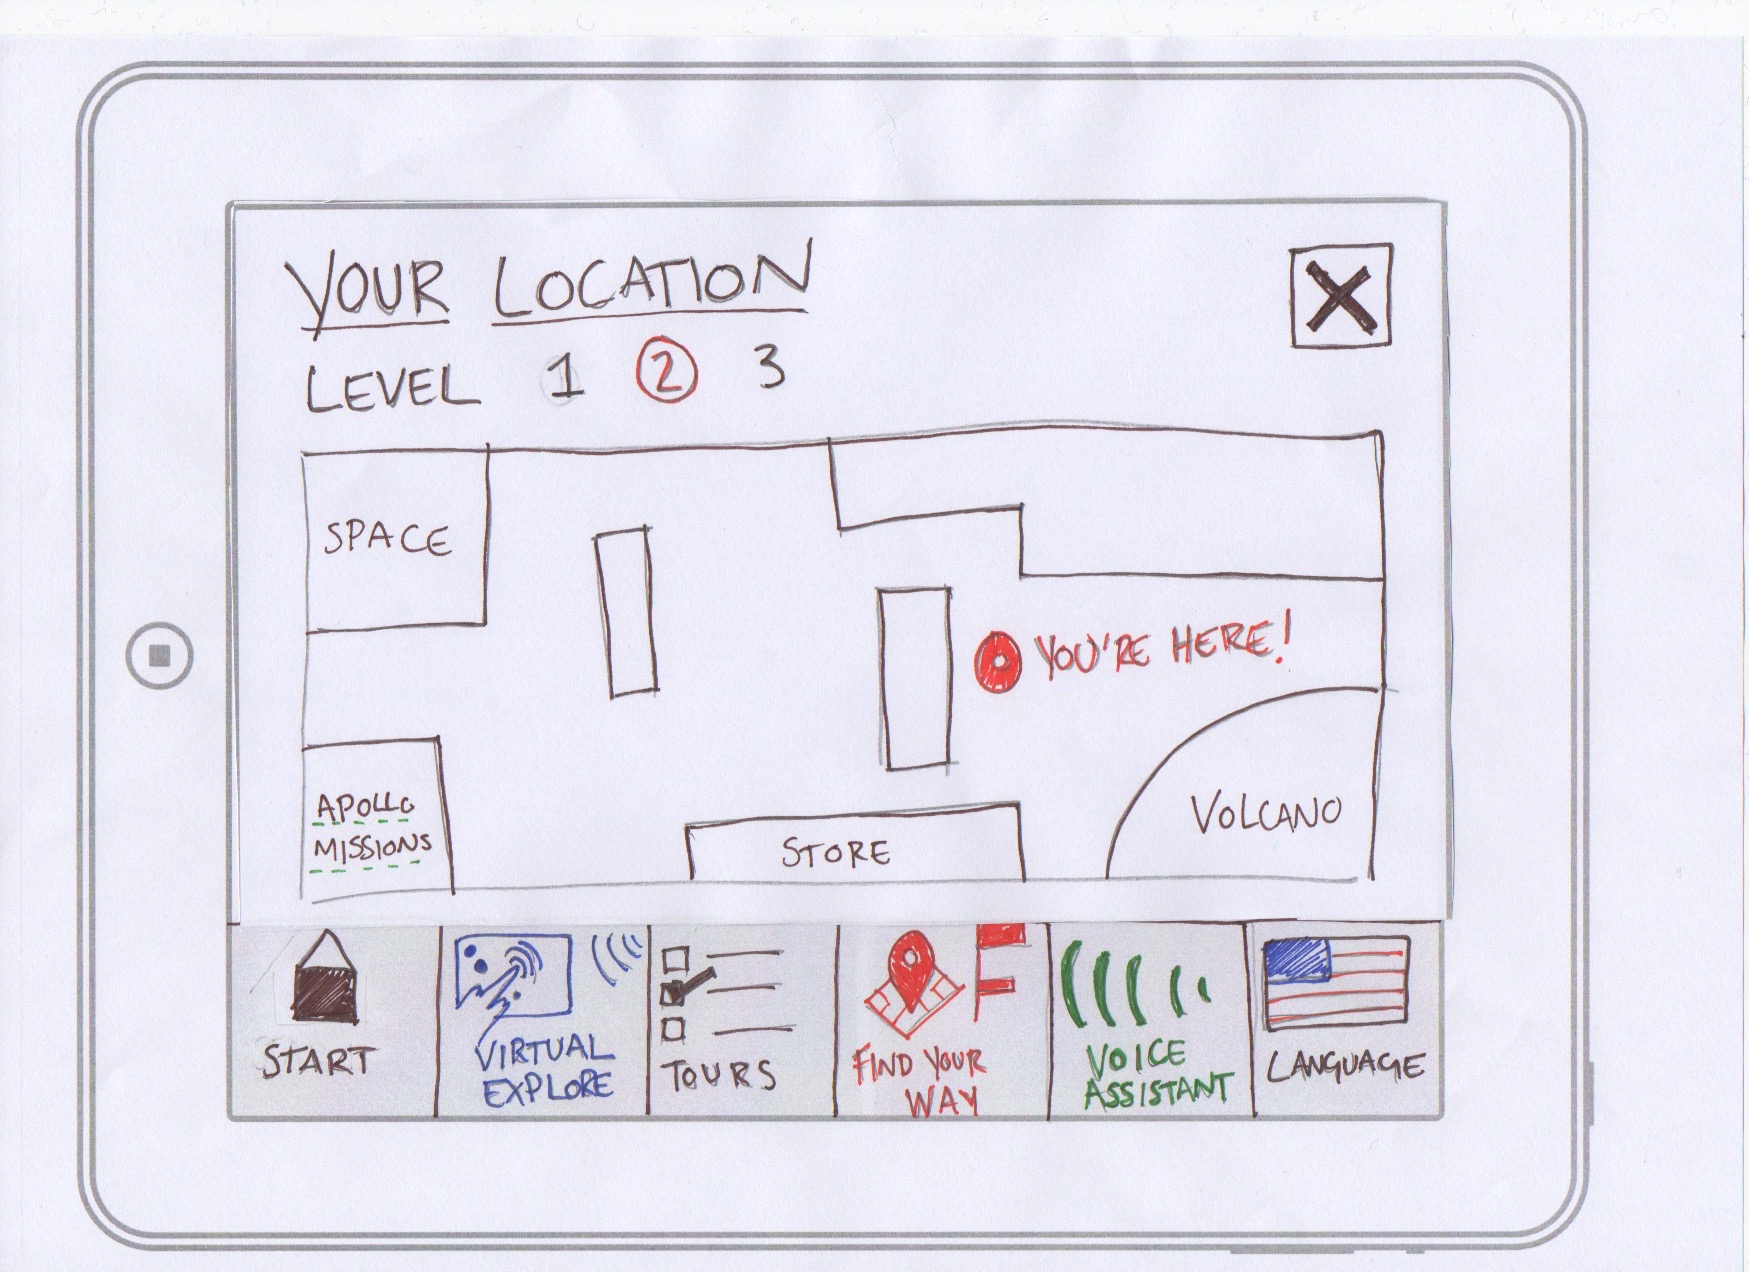 YOUR LOCATION
LEVEL 1 2 3
SPACE
YOU'RE HERE!
APOLLO
MISSIONS
STORE
VOLCANO
START
VIRTUAL
EXPLORE
TOURS
FIND YOUR
WAY
VOICE
ASSISTANT
LANGUAGE